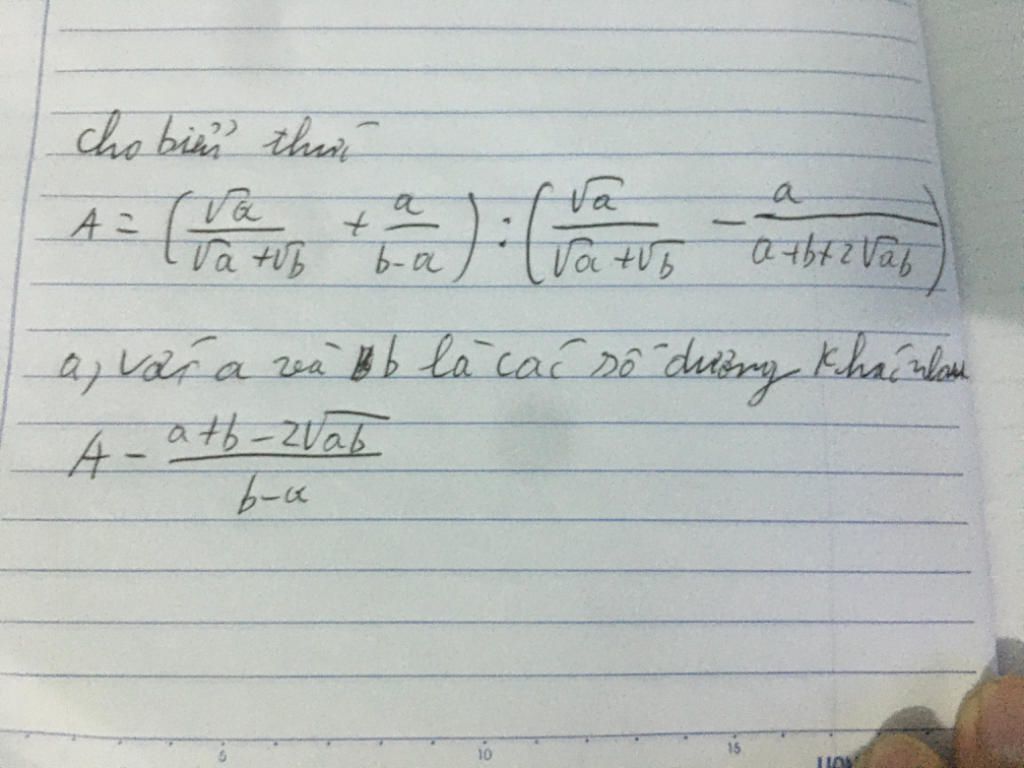 Cho biểu thức
A = (√a/(√a+√b) + a/(b-a)) : (√a/(√a+√b) - a/(a+b+2√ab))
a, Với a và b là các số dương khác nhau
A - (a+b-2√ab)/(b-a)
5 10 15